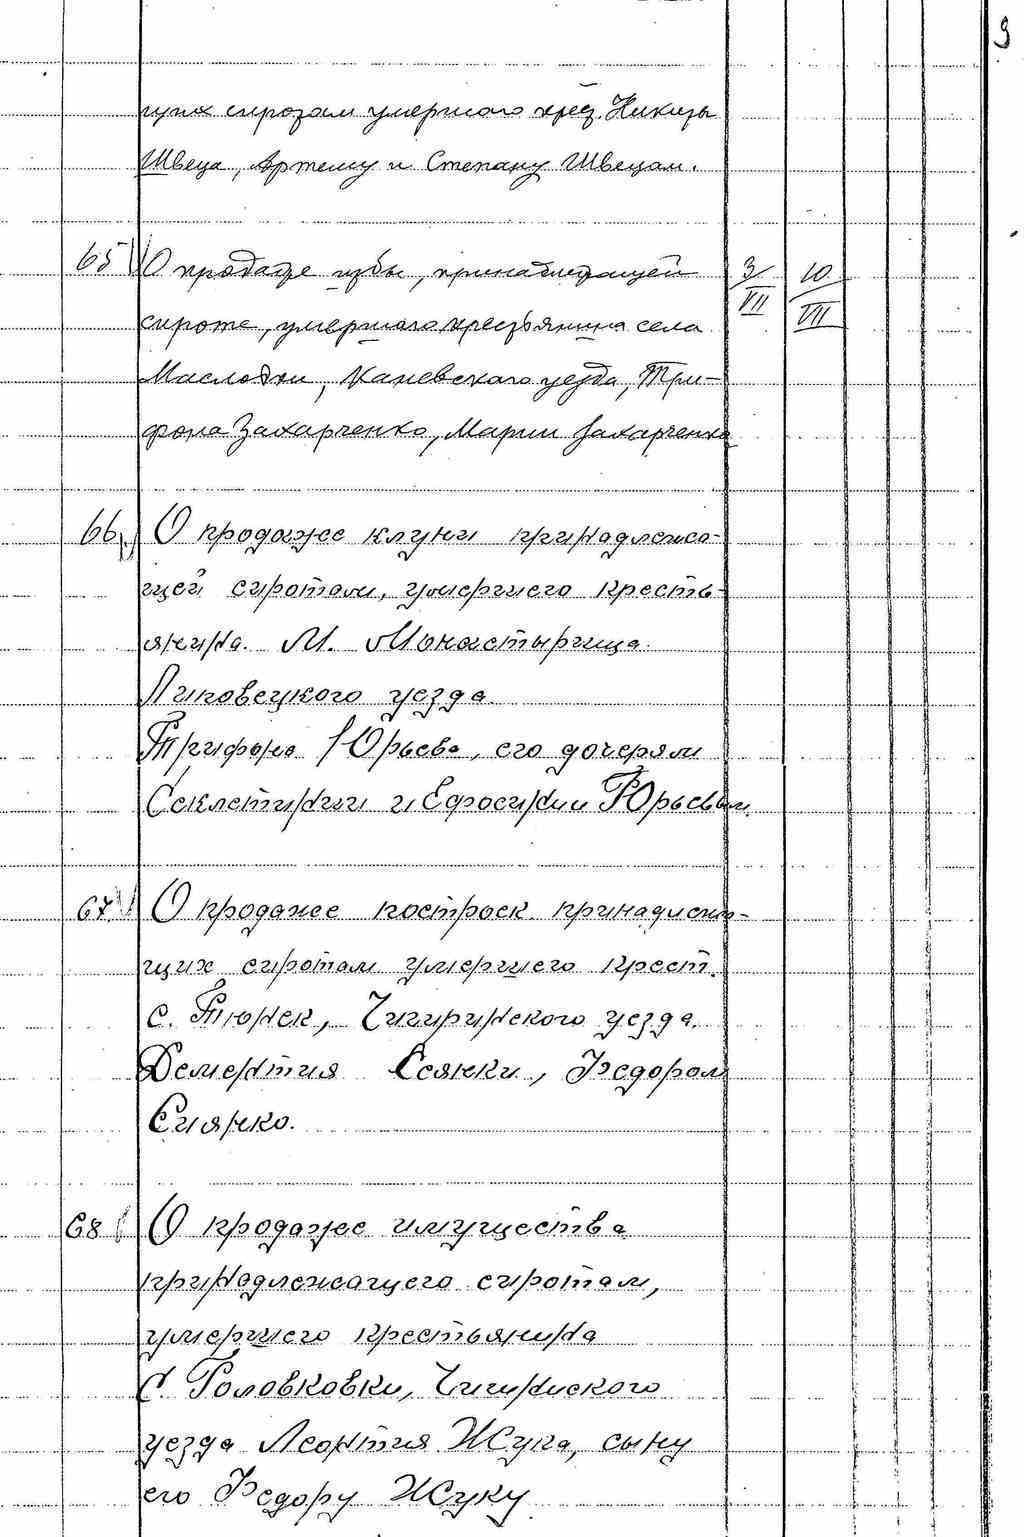 9
щих сиротам умершого крес. Никиты
Швеца, Артему и Степану Швецам.
65 О продаже избы, принадлежащей
3/VII 10/VII
сироте, умершаго крестьянина села
Масловки, Каневского уезда, Три-
фона Захарченко, Марии Захарченко
66 О продаже клуни принадлежа-
щей сиротам, умершего кресть-
янина. М. Монастырища.
Липовецкого уезда.
Трифона Юрьева, его дочерям
Секлетинии и Ефросинии Юрьевым.
67 О продаже построек принадлежа-
щих сиротам умершего крест.
с. Тюнек, Чигиринского уезда.
Дементия Сеянки, Федорам
Сиянко.
68 О продаже имущества
принадлежащего сиротам,
умершего крестьянина
С. Головковки, Чигинского
уезда Леонтия Жука, сыну
его Федору Жуку